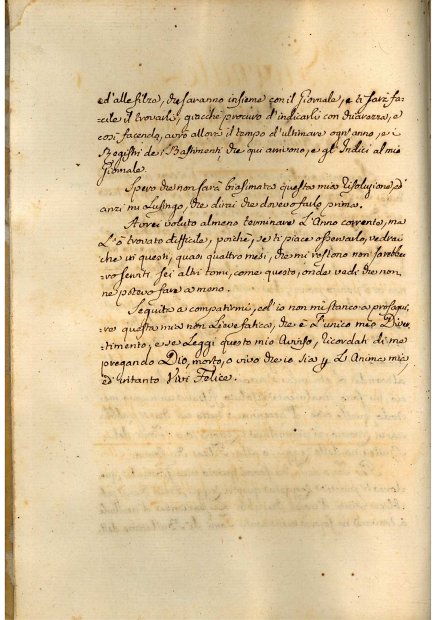 ed' alle filza, che saranno insieme con il Giornale, e ti sarà fa-
cile il trovarli, giacchè procuro d'indicarli con chiarezza, e
così facendo, avrò allora il tempo d'ultimare ogn'anno, e i
Registri de i Bastimenti, che qui arrivono, e gl' Indici al mio
Giornale.
Spero che non sarà biasimata questa mia risoluzione, ed
anzi mi lusingo, che dirai che dovevo farlo prima.
Avrei voluto almeno terminare l'Anno corrente, ma
l'ò trovato difficile, poichè, se ti piace osservarlo, vedrai
che in questi, quasi quattro mesi, che mi restono non sarebbe-
ro serviti sei altri tomi, come questo, onde vedi che non
ne potevo fare a meno.
Seguita a compatirmi, ed' io non mi stanco a prosegui-
re questa mia non lieve fatica, che è l'unico mio Diver-
timento, e se leggi questo mio Avviso, ricordati di me
pregando Dio, morto, o vivo che io sia p L'Anima mia,
ed intanto Vivi Felice.